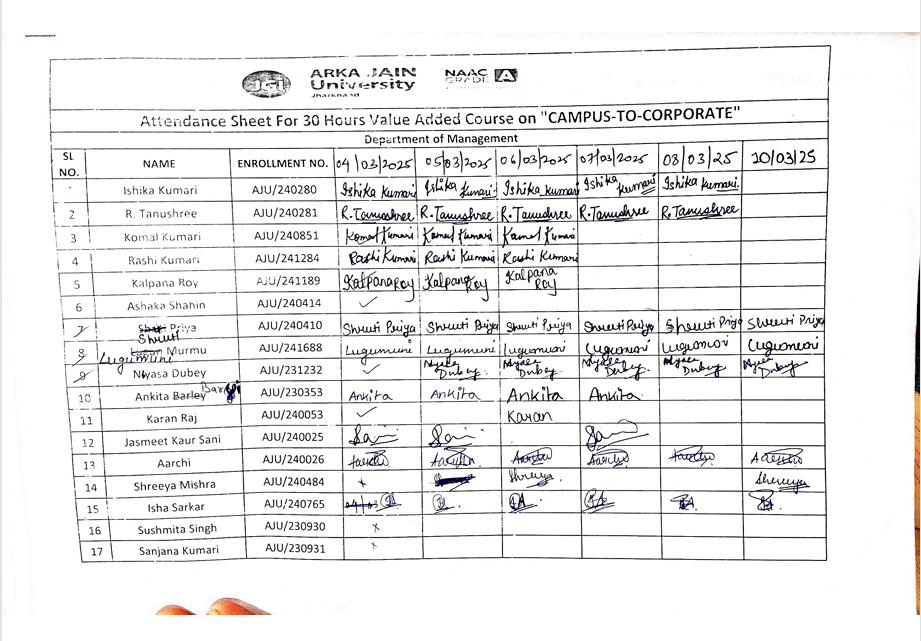 JGI ARKA JAIN University Jharkhand NAAC GRADE A
Attendance Sheet For 30 Hours Value Added Course on "CAMPUS-TO-CORPORATE"
Department of Management
SL NO. NAME ENROLLMENT NO. 04/03/2025 05/03/2025 06/03/2025 07/03/2025 08/03/25 10/03/25
1 Ishika Kumari AJU/240280 Ishika Kumari Ishika Kumari Ishika Kumari Ishika Kumari Ishika Kumari
2 R. Tanushree AJU/240281 R. Tanushree R. Tanushree R. Tanushree R. Tanushree R. Tanushree
3 Komal Kumari AJU/240851 Komal Kumari Komal Kumari Komal Kumari
4 Rashi Kumari AJU/241284 Rashi Kumari Rashi Kumari Rashi Kumari
5 Kalpana Roy AJU/241189 Kalpana Roy Kalpana Roy Kalpana Roy
6 Ashaka Shahin AJU/240414 ✓
7 Shruti Priya AJU/240410 Shruti Priya Shruti Priya Shruti Priya Shruti Priya Shruti Priya Shruti Priya
8 Lugumuni Murmu AJU/241688 Lugumuni Lugumuni Lugumuni Lugumuni Lugumuni Lugumuni
9 Nyasa Dubey AJU/231232 ✓ Nyasa Dubey Nyasa Dubey Nyasa Dubey Nyasa Dubey Nyasa Dubey
10 Ankita Barley AJU/230353 Ankita Ankita Ankita Ankita
11 Karan Raj AJU/240053 ✓ Karan
12 Jasmeet Kaur Sani AJU/240025 Sani Sani Sani
13 Aarchi AJU/240026 Aarchi Aarchi Aarchi Aarchi Aarchi Aarchi
14 Shreeya Mishra AJU/240484 x Shreeya Shreeya
15 Isha Sarkar AJU/240765 04/03
16 Sushmita Singh AJU/230930 x
17 Sanjana Kumari AJU/230931 x